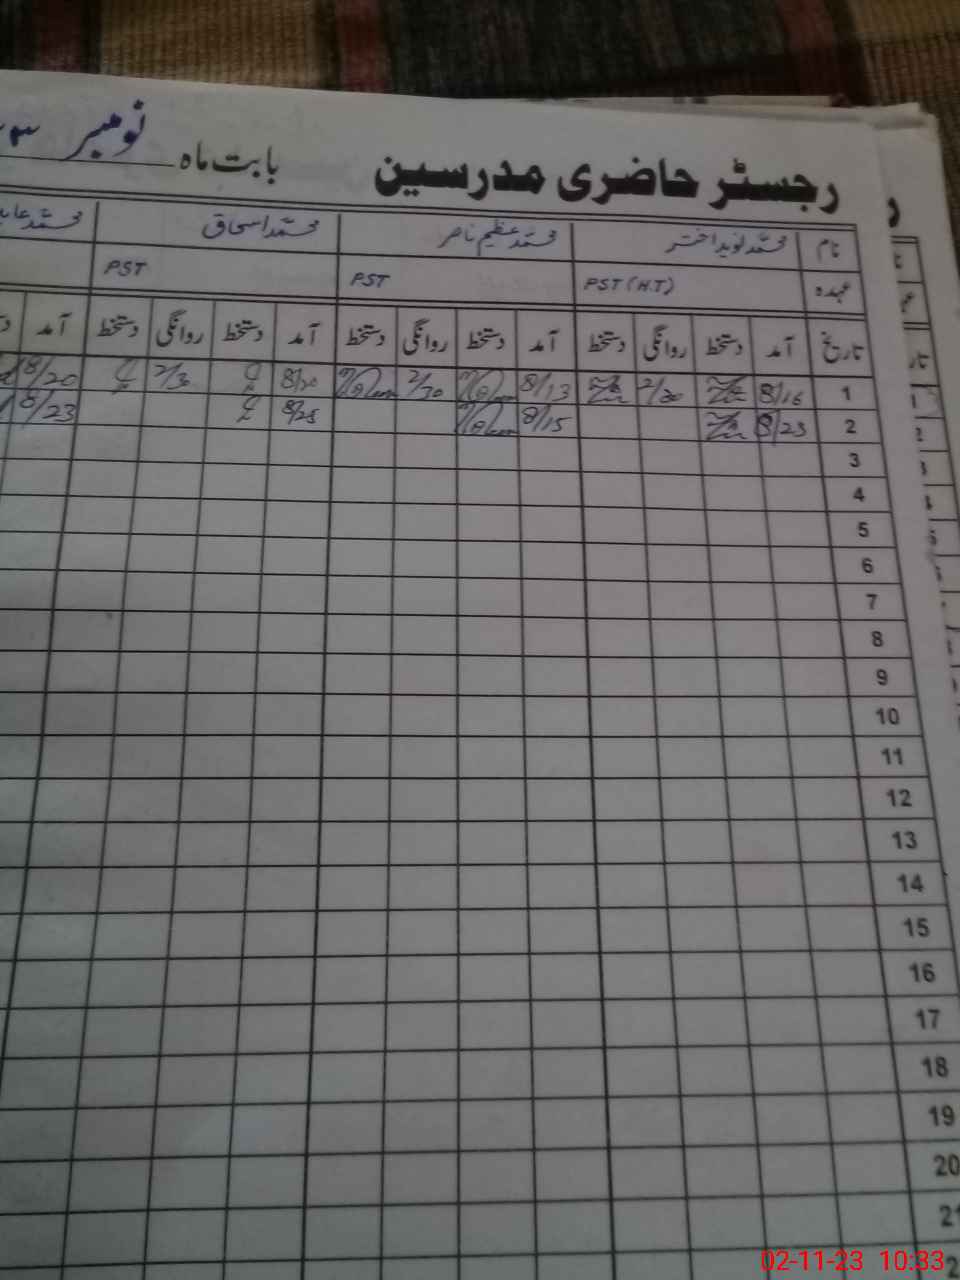 رجسٹر حاضری مدرسین بابت ماہ نومبر
نام محمد نوید اختر محمد عظیم ناصر محمد اسحاق محمد عابد
عہدہ PST (H.T) PST PST
تاریخ آمد دستخط روانگی دستخط آمد دستخط روانگی دستخط آمد دستخط روانگی دستخط آمد
1 8/16 2/30 8/13 2/30 8/20 2/30 8/20
2 8/23 8/15 8/23 8/23
3
4
5
6
7
8
9
10
11
12
13
14
15
16
17
18
19
20
21
02-11-23 10:33